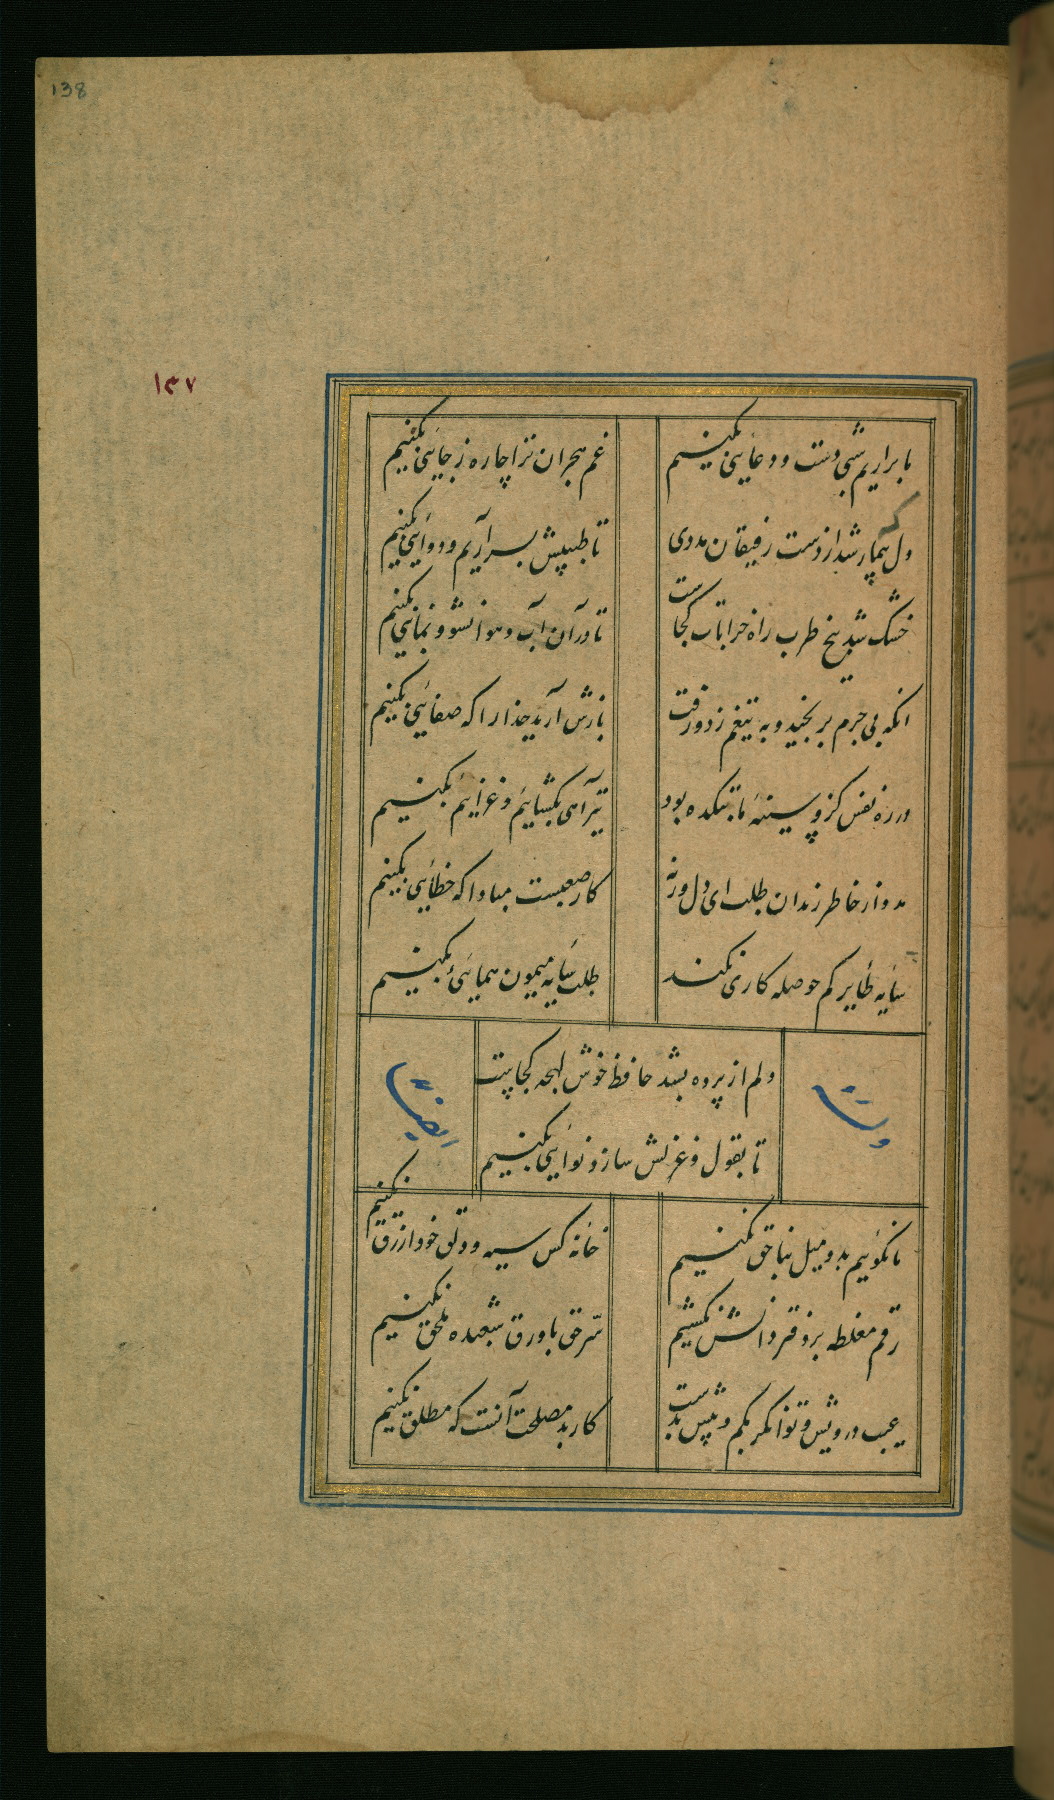 138
۱۳۷
ما برآریم شبی دست و دعایی بکنیم
غم هجران ترا چاره ز جایی بکنیم
دل بیمار شد از دست رفیقان مددی
تا طبیبش بسر آریم و دوایی بکنیم
خشک شد بیخ طرب راه خرابات کجاست
تا در آن آب و هوا نشو و نمایی بکنیم
انکه بی جرم برنجید و به تیغم زد و رفت
بازش آرید خدا را که صفایی بکنیم
در ره نفس کزو سینه ما بتکده بود
تیر آهی بکشاییم و غزایی بکنیم
مدد از خاطر رندان طلب ای دل ورنه
کار صعبست مبادا که خطایی بکنیم
سایه طایر کم حوصله کاری نکند
طلب سایه میمون همایی بکنیم
دلم از پرده بشد حافظ خوش لهجه کجاست
تا بقول و غزلش ساز و نوایی بکنیم
وله
ایضا
ما نگوییم بد و میل بناحق نکنیم
خانه کس سیه و دلق خود ازرق نکنیم
رقم مغلطه بر دفتر دانش نکشیم
سر حق با ورق شعبده ملحق نکنیم
عیب درویش و توانگر بکم و بیش بدست
کار بد مصلحت آنست که مطلق نکنیم